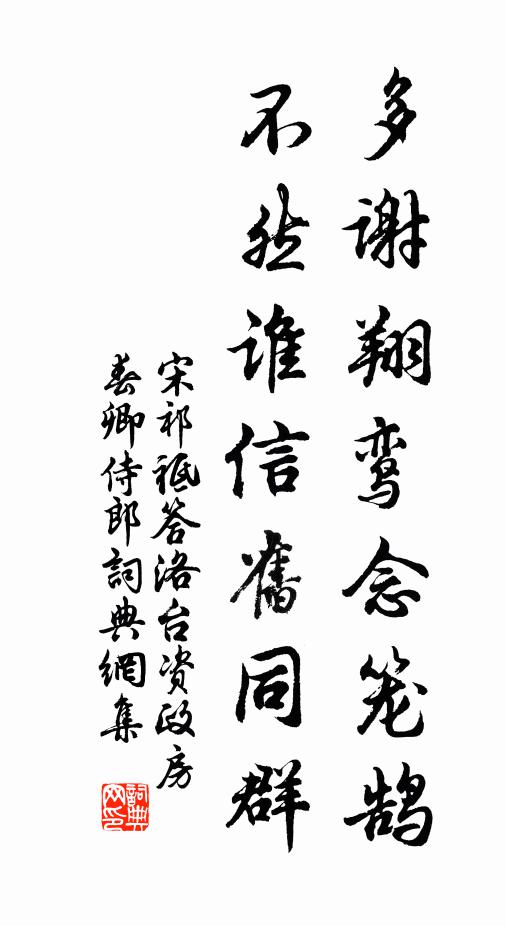 多谢翔鸾念笼鹄
不然谁信舊同群
宋祁祗答洛台资政房
春卿侍郎詞典網集
詞典网印